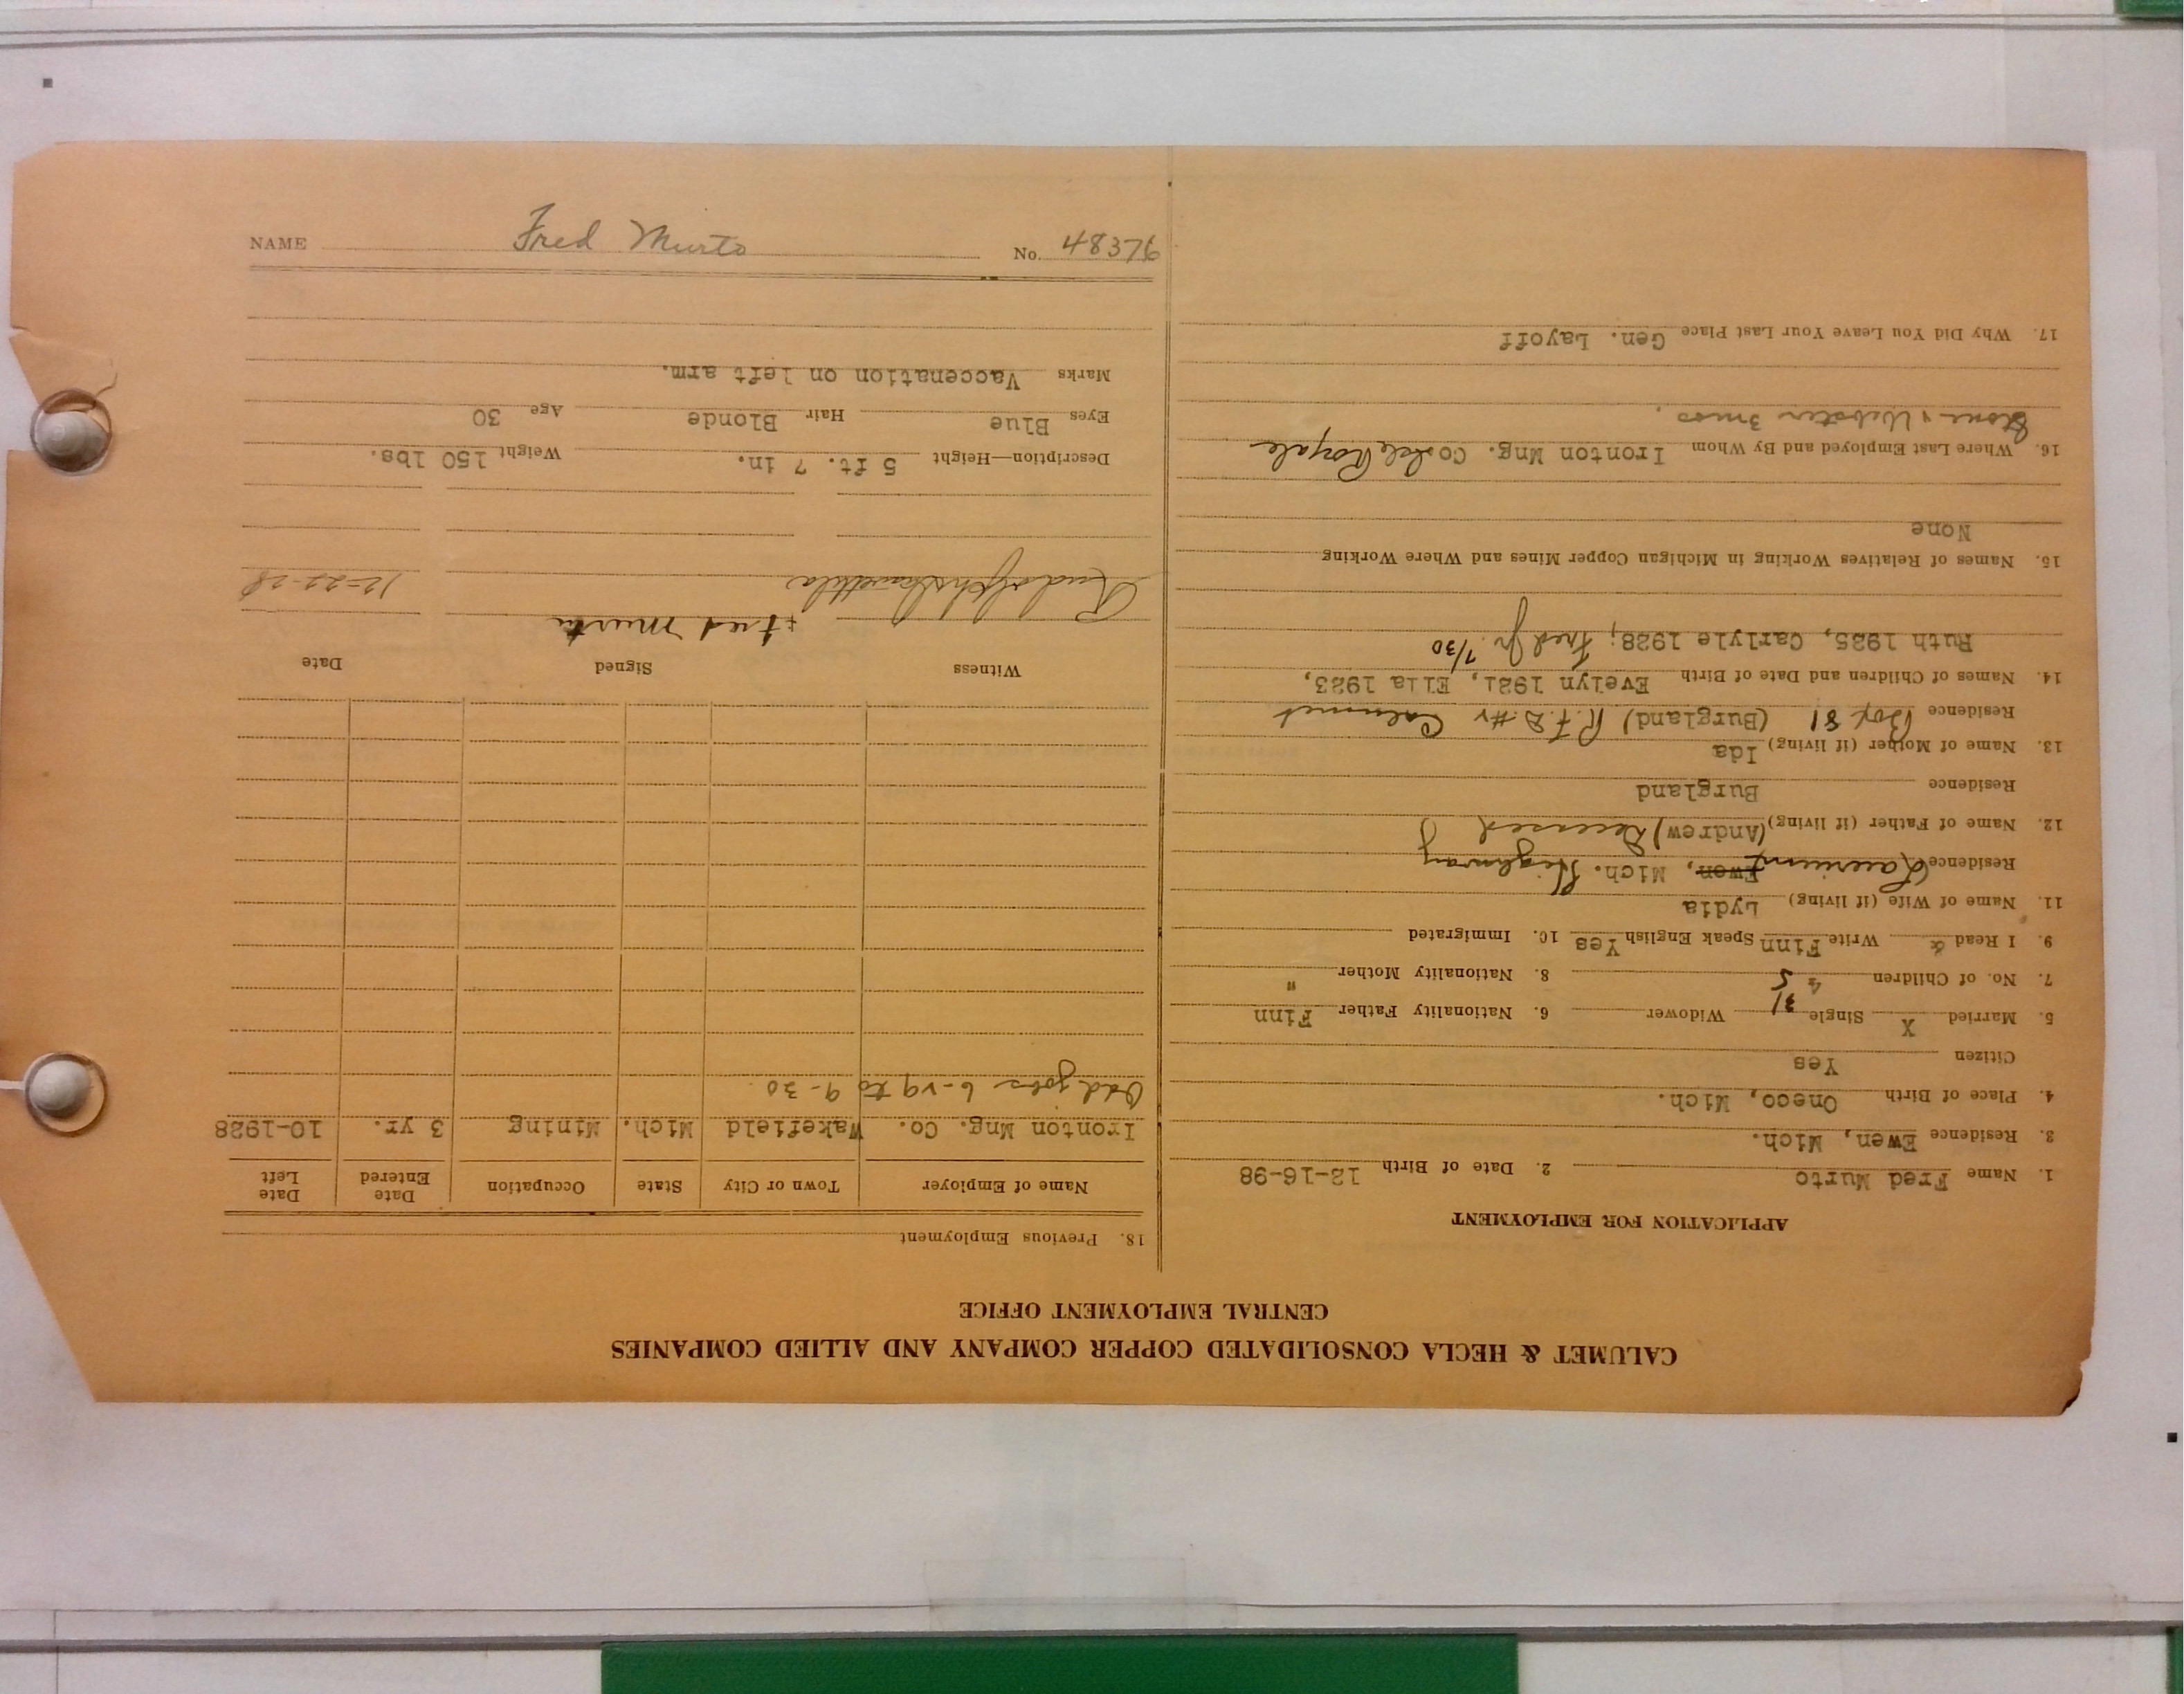 CALUMET & HECLA CONSOLIDATED COPPER COMPANY AND ALLIED COMPANIES
CENTRAL EMPLOYMENT OFFICE
APPLICATION FOR EMPLOYMENT
1. Name Fred Murto 2. Date of Birth 12-16-98
3. Residence Ewen, Mich.
4. Place of Birth Oneco, Mich.
Citizen Yes
5. Married X Single 31 Widower 6. Nationality Father Finn
7. No. of Children 4 5 8. Nationality Mother "
9. I Read & Write Finn Speak English Yes 10. Immigrated
11. Name of Wife (if living) Lydia
Residence Laurium Ewen, Mich. Highway
12. Name of Father (if living) (Andrew) Deceased
Residence Burgland
13. Name of Mother (if living) Ida
Residence Box 81 (Burgland) R.F.D. #1 Calumet
14. Names of Children and Date of Birth Evelyn 1921, Ella 1923,
Ruth 1925, Carlyle 1928; Fred Jr. 7/30
15. Names of Relatives Working in Michigan Copper Mines and Where Working
None
16. Where Last Employed and By Whom Ironton Mng. Co. Isle Royale
Stone & Webster 3 mos.
17. Why Did You Leave Your Last Place Gen. Layoff
18. Previous Employment
Name of Employer Town or City State Occupation Date Entered Date Left
Ironton Mng. Co. Wakefield Mich. Mining 3 yr. 10-1928
Odd jobs 6-29 to 9-30
Witness Signed Date
Fred Murto
12-22-28
Description—Height 5 ft. 7 in. Weight 150 lbs.
Eyes Blue Hair Blonde Age 30
Marks Vaccenation on left arm.
NAME Fred Murto No. 48376